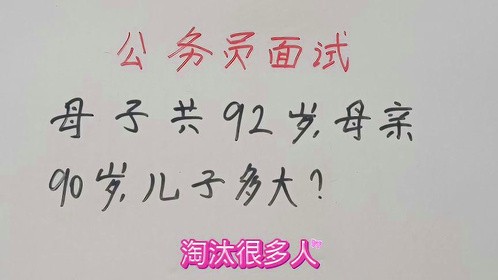 公务员面试
母子共92岁,母亲
90岁,儿子多大?
淘汰很多人